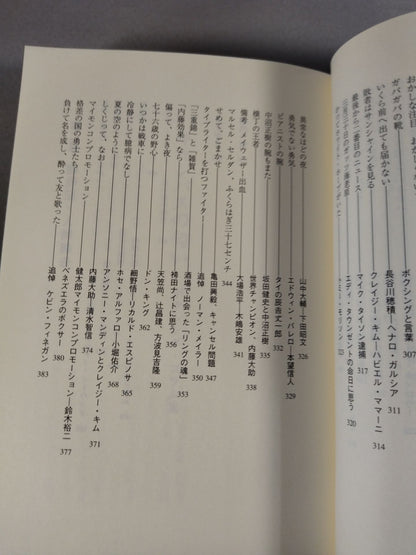 ボクシングと言葉 307
ガバガバの靴 長谷川穂積―ヘナロ・ガルシア 311
いくら前へ出ても届かない クレイジー・キム―ハビエル・ママーニ 314
敗者はサンシャインを見る マイク・タイソン逮捕 317
最後から二番目のニュース エディ・タウンゼントの命日に思う 320
異常なほどの夜 山中大輔、下田昭文 326
勇気でない勇気 エドウィン・バレロ―本望信人 329
ピアニストの腕 タイの辰吉丈一郎 332
中迫正樹の腕もまた 坂田健史と中迫正樹 335
横丁の王者 世界チャンピオン・内藤大助
備考、メイウェザー出血 大場浩平―木嶋安雄 341
マルセル・セルダン、ふくらはぎ三十七センチ 344
せめて、ごまかせ 亀田興毅、キャンセル問題 347
タイプライターを打つファイター 追悼 ノーマン・メイラー 350
「三重錦」と「雑賀」 酒場で出会った「リングの魂」 353
「内藤効果」なら 袴田ナイトに思う 356
偏って、よき夜 天笠尚、辻昌建、方波見吉隆 359
七十六歳の野心 ドン・キング 362
いつかは戦車に 細野悟―リカルド・エスピノサ 365
冷静にして臆病でなし ホセ・アルファロ―小堀佑介 368
夏の空のように アンソニー・マンディンとクレイジー・キム 371
しくじって、なお 内藤大助―清水智信 374
マイモンコンプロモーション 健太郎マイモンコンプロモーション―鈴木裕二 377
格差の国の勇士たち ベネズエラのボクサー 380
負けて名を成し、酔って友と歌った 追悼 ケビン・フィネガン 383